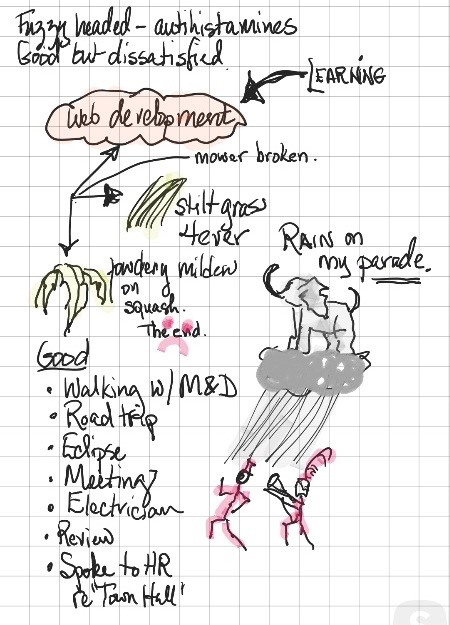 Fuzzy headed - antihistamines
Good but dissatisfied.
LEARNING
web development
mower broken.
stiltgrass
4ever
RAIN on
my parade.
Powdery mildew
on
squash.
The end.
Good
• Walking w/ M&D
• Road trip
• Eclipse
• Meeting
• Electrician
• Review
• Spoke to HR
re "Town Hall"